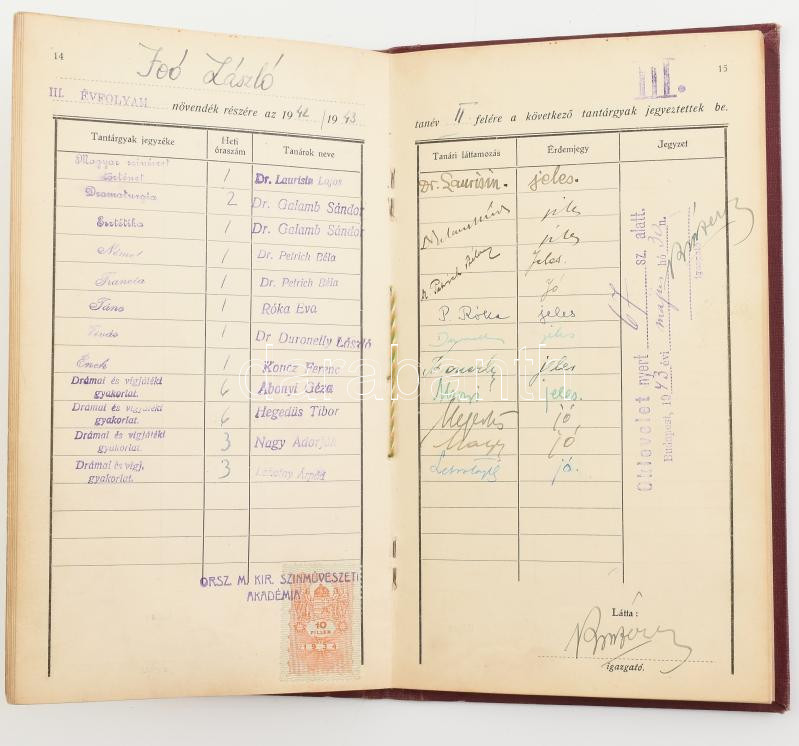 14
Foó László
III. ÉVFOLYAM növendék részére az 1942/1943
Tantárgyak jegyzéke Heti óraszám Tanárok neve
Magyar színészet történet 1 Dr. Laurisin Lajos
Dramaturgia 2 Dr. Galamb Sándor
Esztétika 1 Dr. Galamb Sándor
Német 1 Dr. Petrich Béla
Francia 1 Dr. Petrich Béla
Tánc 1 Róka Éva
Vívás 1 Dr Duronelly László
Ének 1 Koncz Ferenc
Drámai és vígjátéki gyakorlat. 6 Abonyi Géza
Drámai és vígjátéki gyakorlat. 6 Hegedüs Tibor
Drámai és vígjátéki gyakorlat. 3 Nagy Adorján
Drámai és vígj. gyakorlat. 3 Lehotay Árpád
ORSZ. M. KIR. SZINMŰVÉSZETI
AKADÉMIA
10
FILLÉR
1934
15
III.
tanév II felére a következő tantárgyak jegyeztettek be.
Tanári láttamozás Érdemjegy Jegyzet
Dr. Laurisin. jeles.
jeles
jeles
Dr. Petrich Béla jeles.
Jó
P. Róka jeles
jeles
jeles
Abonyi jeles.
Hegedüs jó
Nagy jó
Lehotay jó.
Oklevelet nyert 67 sz. alatt.
Budapest, 1943 évi május hó 30 n.
igazgató
Látta:
igazgató.
darabanth